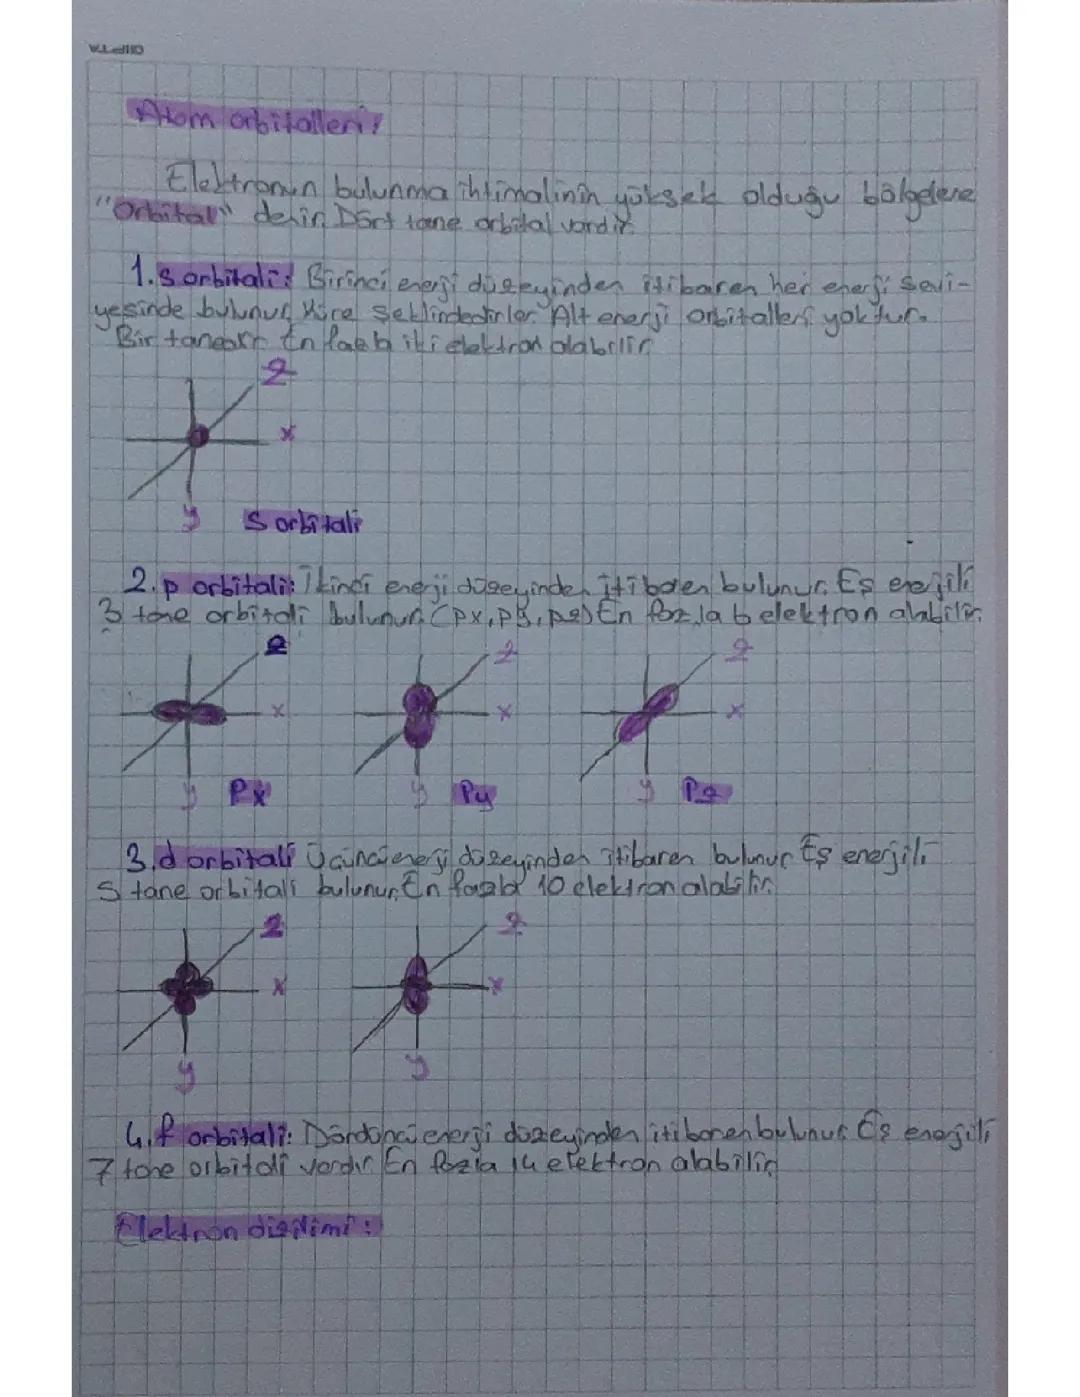 Atom orbitalleri:
Elektronun bulunma ihtimalinin yüksek olduğu bölgelere
"Orbital" denir. Dört tane orbital vardır.
1. s orbitali: Birinci enerji düzeyinden itibaren her enerji sevi-
yesinde bulunur. Küre şeklindedirler. Alt enerji orbitalleri yoktur.
Bir tanedir. En fazla iki elektron alabilir.
z
x
y
s orbitali
2. p orbitali: İkinci enerji düzeyinden itibaren bulunur. Eş enerjili
3 tane orbitali bulunur. (px, py, pz) En fazla 6 elektron alabilir.
z z z
x x x
y Px y Py y Pz
3. d orbitali Üçüncü enerji düzeyinden itibaren bulunur. Eş enerjili
5 tane orbitali bulunur. En fazla 10 elektron alabilir.
z z
x x
y y
4. f orbitali: Dördüncü enerji düzeyinden itibaren bulunur. Eş enerjili
7 tane orbitali vardır. En fazla 14 elektron alabilir.
Elektron dizilimi: